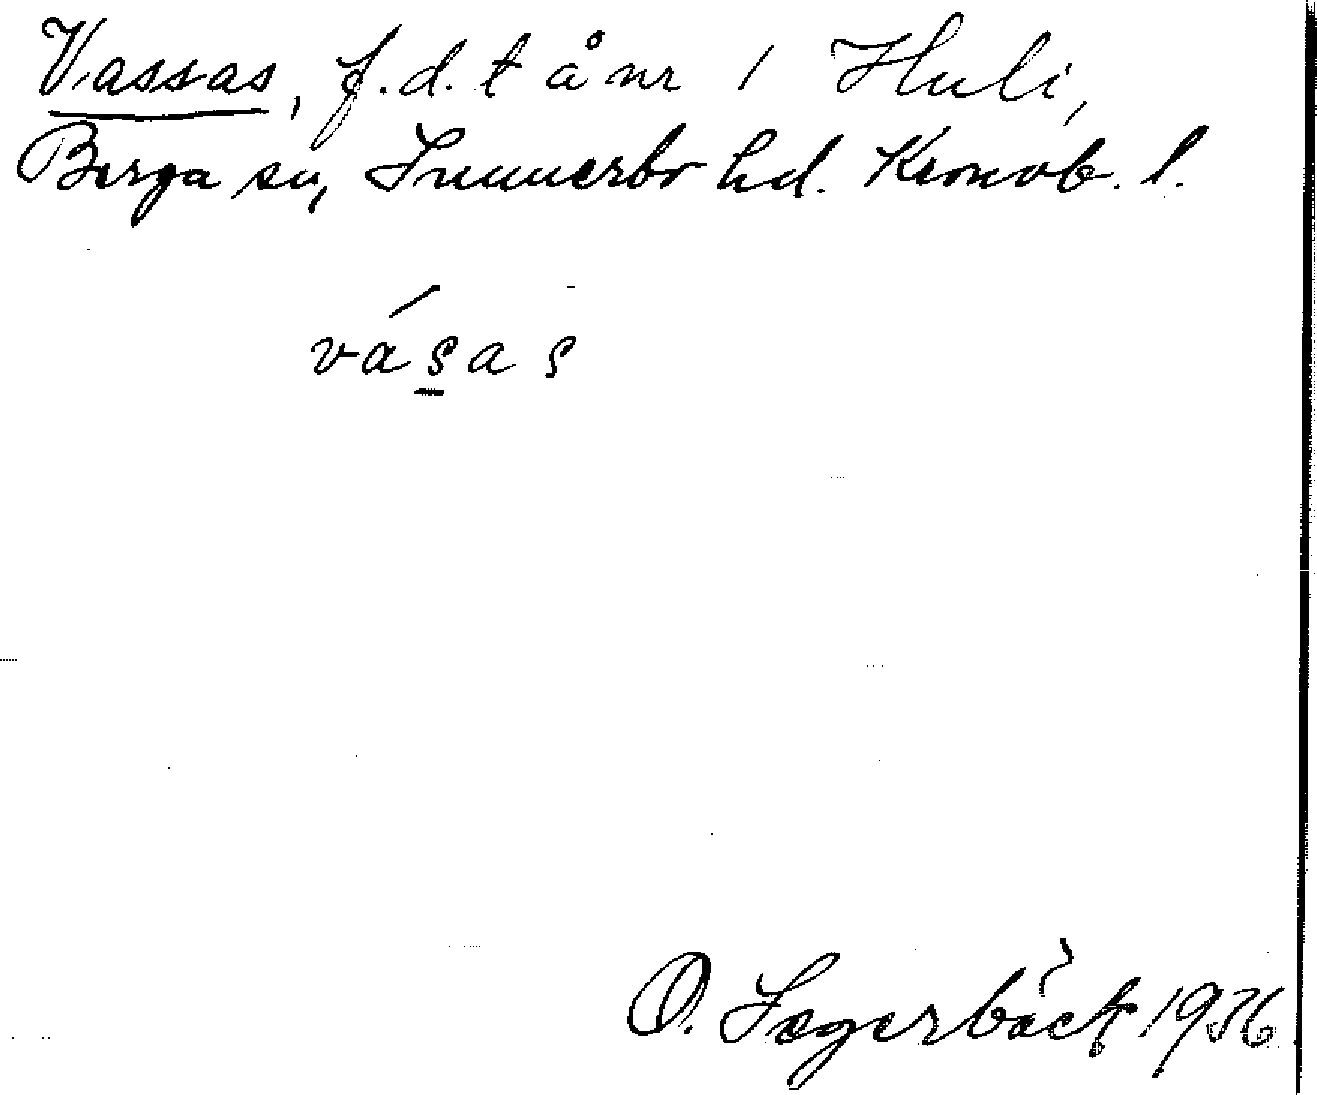 Vassas, f.d. t å nr 1 Huli,
Berga sn, Sunnerbo hd. Kronob. l.
vásas
O. Segerbäck 1936